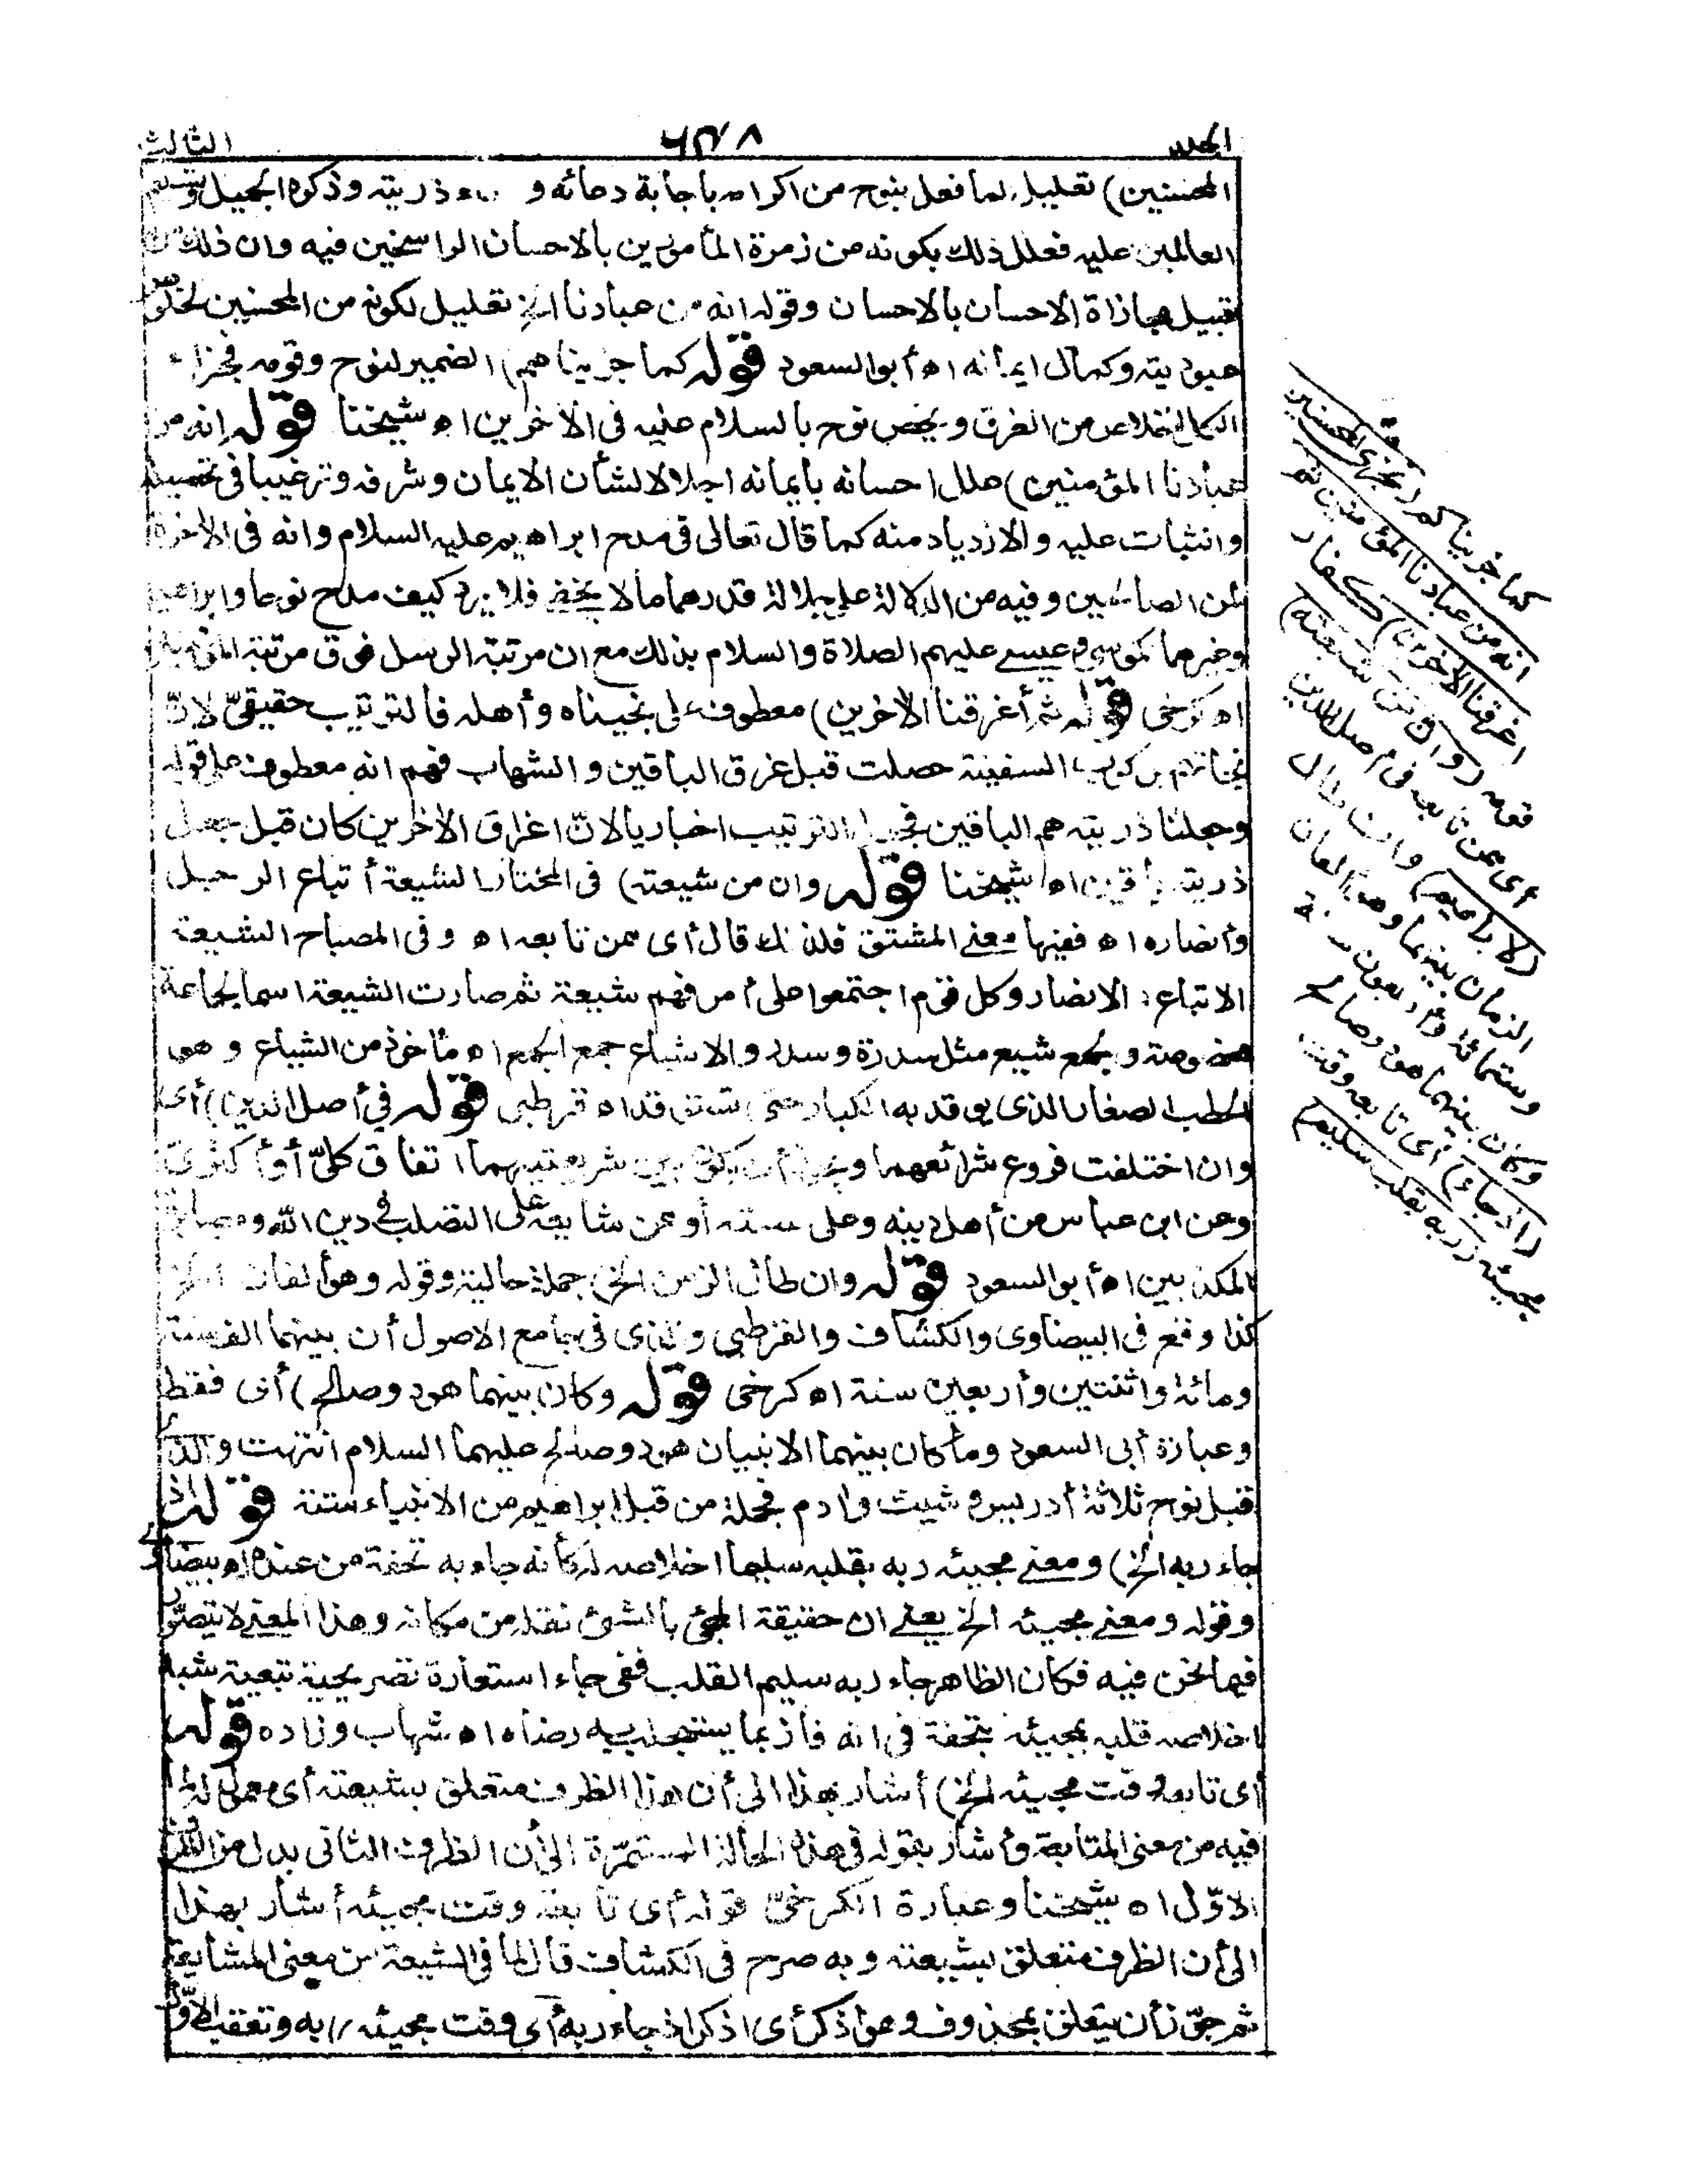 الجلد
٦٤٨
الثالث
المحسنين) تعليل لما فعل بنوح من اكرامه باجابة دعائه و ذريته وذكره الجميل وتسليم
العالمين عليه فعلل ذلك بكونه من زمرة المأمورين بالاحسان الراسخين فيه وان ذلك من
قبيل مجازاة الاحسان بالاحسان وقوله انه من عبادنا الخ تعليل لكونه من المحسنين بخلوص
عبوديته وكمال ايمانه اه أبو السعود قوله كما جزيناهم) الضمير لنوح وقومه فجزاء
الكل الخلاص من الغرق ويخص نوح بالسلام عليه فى الآخرين اه شيخنا قوله انه من
عبادنا المؤمنين) علل احسانه بايمانه اجلالا لشأن الايمان وشرفه وترغيبا فى تحصيله
والثبات عليه والازدياد منه كما قال تعالى فى مدح ابراهيم عليه السلام وانه فى الآخرة
لمن الصالحين وفيه من الدلالة على جلالة قدرهما ما لا يخفى فلا يرد كيف مدح نوحا وابراهيم
وغيرهما كموسى وعيسى عليهم الصلاة والسلام بذلك مع ان مرتبة الرسل فوق مرتبة المؤمنين
اه كرخى قوله ثم أغرقنا الآخرين) معطوف على نجيناه وأهله فالترتيب حقيقىّ لانّ
نجاتهم بركوب السفينة حصلت قبل غرق الباقين والشهاب فهم انه معطوف على قوله
وجعلنا ذريته هم الباقين فجعل الترتيب اخباريا لانّ اغراق الآخرين كان قبل جعل
ذريته باقين اه شيخنا قوله وان من شيعته) فى المختار الشيعة أتباع الرجل
وأنصاره اه ففيها معنى المشتق فلذلك قال أى ممن تابعه اه وفى المصباح الشيعة
الاتباع والانصار وكل قوم اجتمعوا على أمر فهم شيعة ثم صارت الشيعة اسما لجماعة
مخصوصة وجمع شيع مثل سدرة وسدر والاشياع جمع الجمع اه مأخوذ من الشياع وهو
الحطب الصغار الذى يوقد به الكبار حتى تستوقد اه قرطبى قوله فى أصل الدين) أى
وان اختلفت فروع شرائعهما ويجوز أن يكون بين شريعتيهما اتفاق كلىّ أو أكثرىّ
وعن ابن عباس من أهل دينه وعلى سنته أو ممن شايعه على التصلب فى دين الله ومصابرة
المكذبين اه أبو السعود قوله وان طال الزمن الخ) جملة حالية وقوله وهو ألفان الخ
كذا وقع فى البيضاوى والكشاف والقرطبى والذى فى جامع الاصول أن بينهما ألف سنة
ومائة واثنتين وأربعين سنة اه كرخى قوله وكان بينهما هود وصالح) أى فقط
وعبارة أبى السعود وما كان بينهما الا نبيان هود وصالح عليهما السلام انتهت والذى
قبل نوح ثلاثة أدريس وشيث وآدم فجملة من قبل ابراهيم من الانبياء ستة قوله اذ
جاء ربه الخ) ومعنى مجيئه ربه بقلبه سليما اخلاصه له كأنه جاء به تحفة من عنده اه بيضاوى
وقوله ومعنى مجيئه الخ يعنى ان حقيقة المجئ بالشئ نقله من مكانه وهذا المعنى لا يتصوّر
فيما نحن فيه فكان الظاهر جاء ربه سليم القلب ففى جاء استعارة تصريحية تبعية شبه
اخلاصه قلبه بمجيئه بتحفة فى انه فاز بما يستجلب به رضاه اه شهاب وزاده قوله
أى تابعه وقت مجيئه الخ) أشار بهذا الى أن هذا الظرف متعلق بشيعته أى معمول له لما
فيه من معنى المتابعة وأشار بقوله فى هذه الحالة المستمرّة الى أن الظرف الثانى بدل من الظرف
الاوّل اه شيخنا وعبارة الكرخىّ قوله أى تابعه وقت مجيئه أشار بهذا
الى أن الظرف متعلق بشيعته وبه صرح فى الكشاف قال لما فى الشيعة من معنى المشايعة
ثم جوّز أن يتعلق بمحذوف وهو اذكر أى اذكر اذ جاء ربه أى وقت مجيئه ربه وتعقب الاوّل
كما جزيناهم (نجزى المحسنين
انه من عبادنا المؤمنين ثم
اغرقنا الآخرين) كفار
قومه (وان من شيعته)
أى ممن تابعه فى أصل الدين
(لابراهيم) وان طال
الزمان بينهما وهو ألفان
وستمائة وأربعون سنة
وكان بينهما هود وصالح
(اذ جاء) أى تابعه وقت
مجيئه (ربه بقلب سليم)